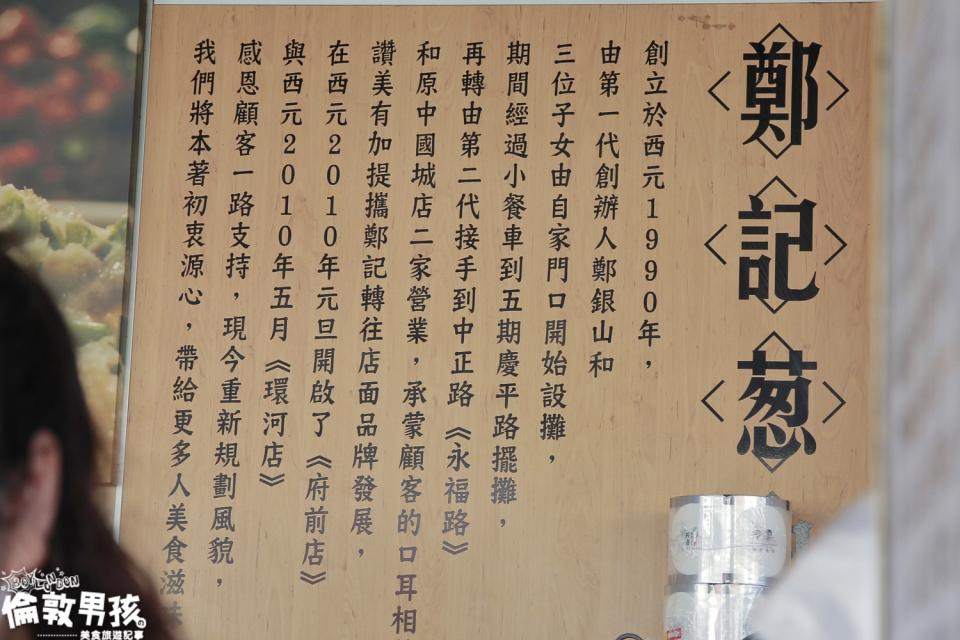 鄭記葱
創立於西元1990年，
由第一代創辦人鄭銀山和
三位子女由自家門口開始設攤，
期間經過小餐車到五期慶平路擺攤，
再轉由第二代接手到中正路《永福路》
和原中國城店二家營業，承蒙顧客的口耳相
讚美有加提攜鄭記轉往店面品牌發展，
在西元2010年元旦開啟了《府前店》
與西元2010年五月《環河店》
感恩顧客一路支持，現今重新規劃風貌，
我們將本著初衷源心，帶給更多人美食滋味
BOYLONDON
倫敦男孩の
美食旅遊記事